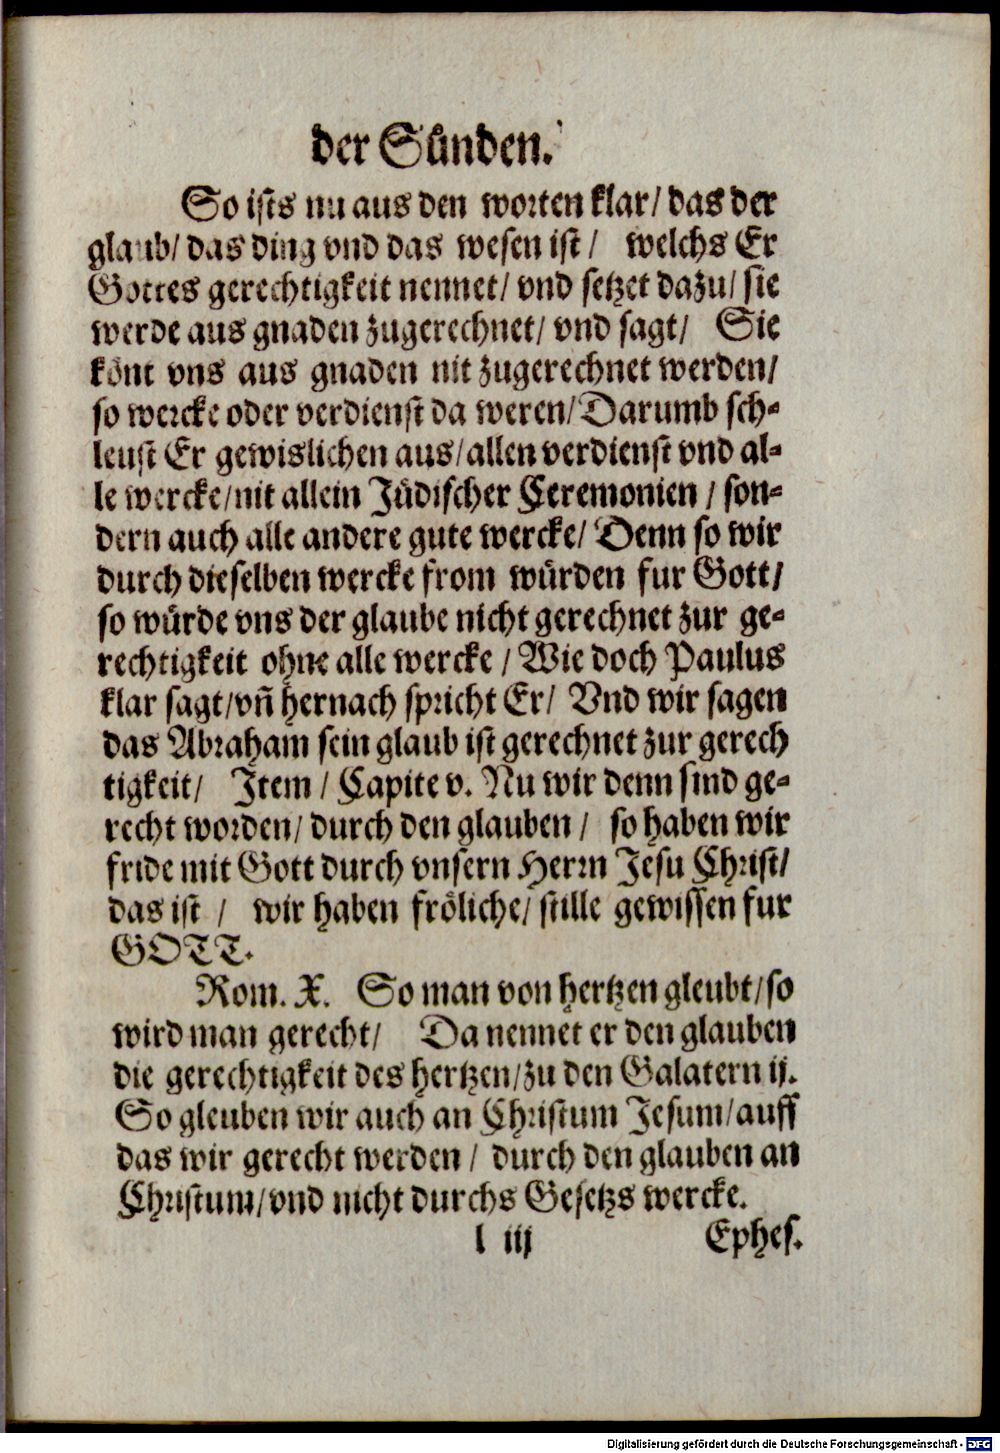 der Sünden.
So ists nu aus den worten klar/ das der
glaub/ das ding vnd das wesen ist/ welchs Er
Gottes gerechtigkeit nennet/ vnd setzet dazu/ sie
werde aus gnaden zugerechnet/ vnd sagt/ Sie
könt vns aus gnaden nit zugerechnet werden/
so wercke oder verdienst da weren/ Darumb sch-
leust Er gewislichen aus/ allen verdienst vnd al-
le wercke/ nit allein Jüdischer Ceremonien/ son-
dern auch alle andere gute wercke/ Denn so wir
durch dieselben wercke from würden fur Gott/
so würde vns der glaube nicht gerechnet zur ge-
rechtigkeit ohne alle wercke/ Wie doch Paulus
klar sagt/ vñ hernach spricht Er/ Vnd wir sagen
das Abraham sein glaub ist gerechnet zur gerech
tigkeit/ Jtem/ Capite v. Nu wir denn sind ge-
recht worden/ durch den glauben/ so haben wir
fride mit Gott durch vnsern Herrn Jesu Christ/
das ist/ wir haben fröliche/ stille gewissen fur
GOTT.
Rom. X. So man von hertzen gleubt/ so
wird man gerecht/ Da nennet er den glauben
die gerechtigkeit des hertzen/ zu den Galatern ij.
So gleuben wir auch an Christum Jesum/ auff
das wir gerecht werden/ durch den glauben an
Christum/ vnd nicht durchs Gesetzs wercke.
l iij Ephes.
Digitalisierung gefördert durch die Deutsche Forschungsgemeinschaft - DFG